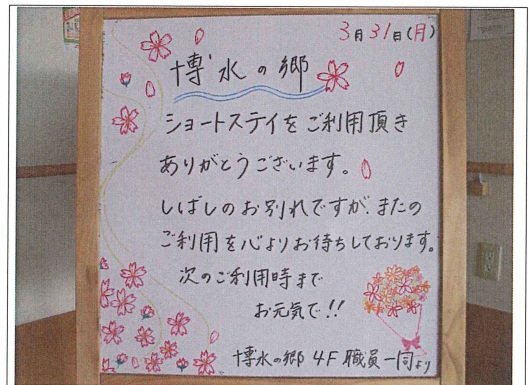 3月31日(月)
博水の郷
ショートステイをご利用頂き
ありがとうございます。
しばしのお別れですが、またの
ご利用を心よりお待ちしております。
次のご利用時まで
お元気で!!
博水の郷 4F 職員一同より